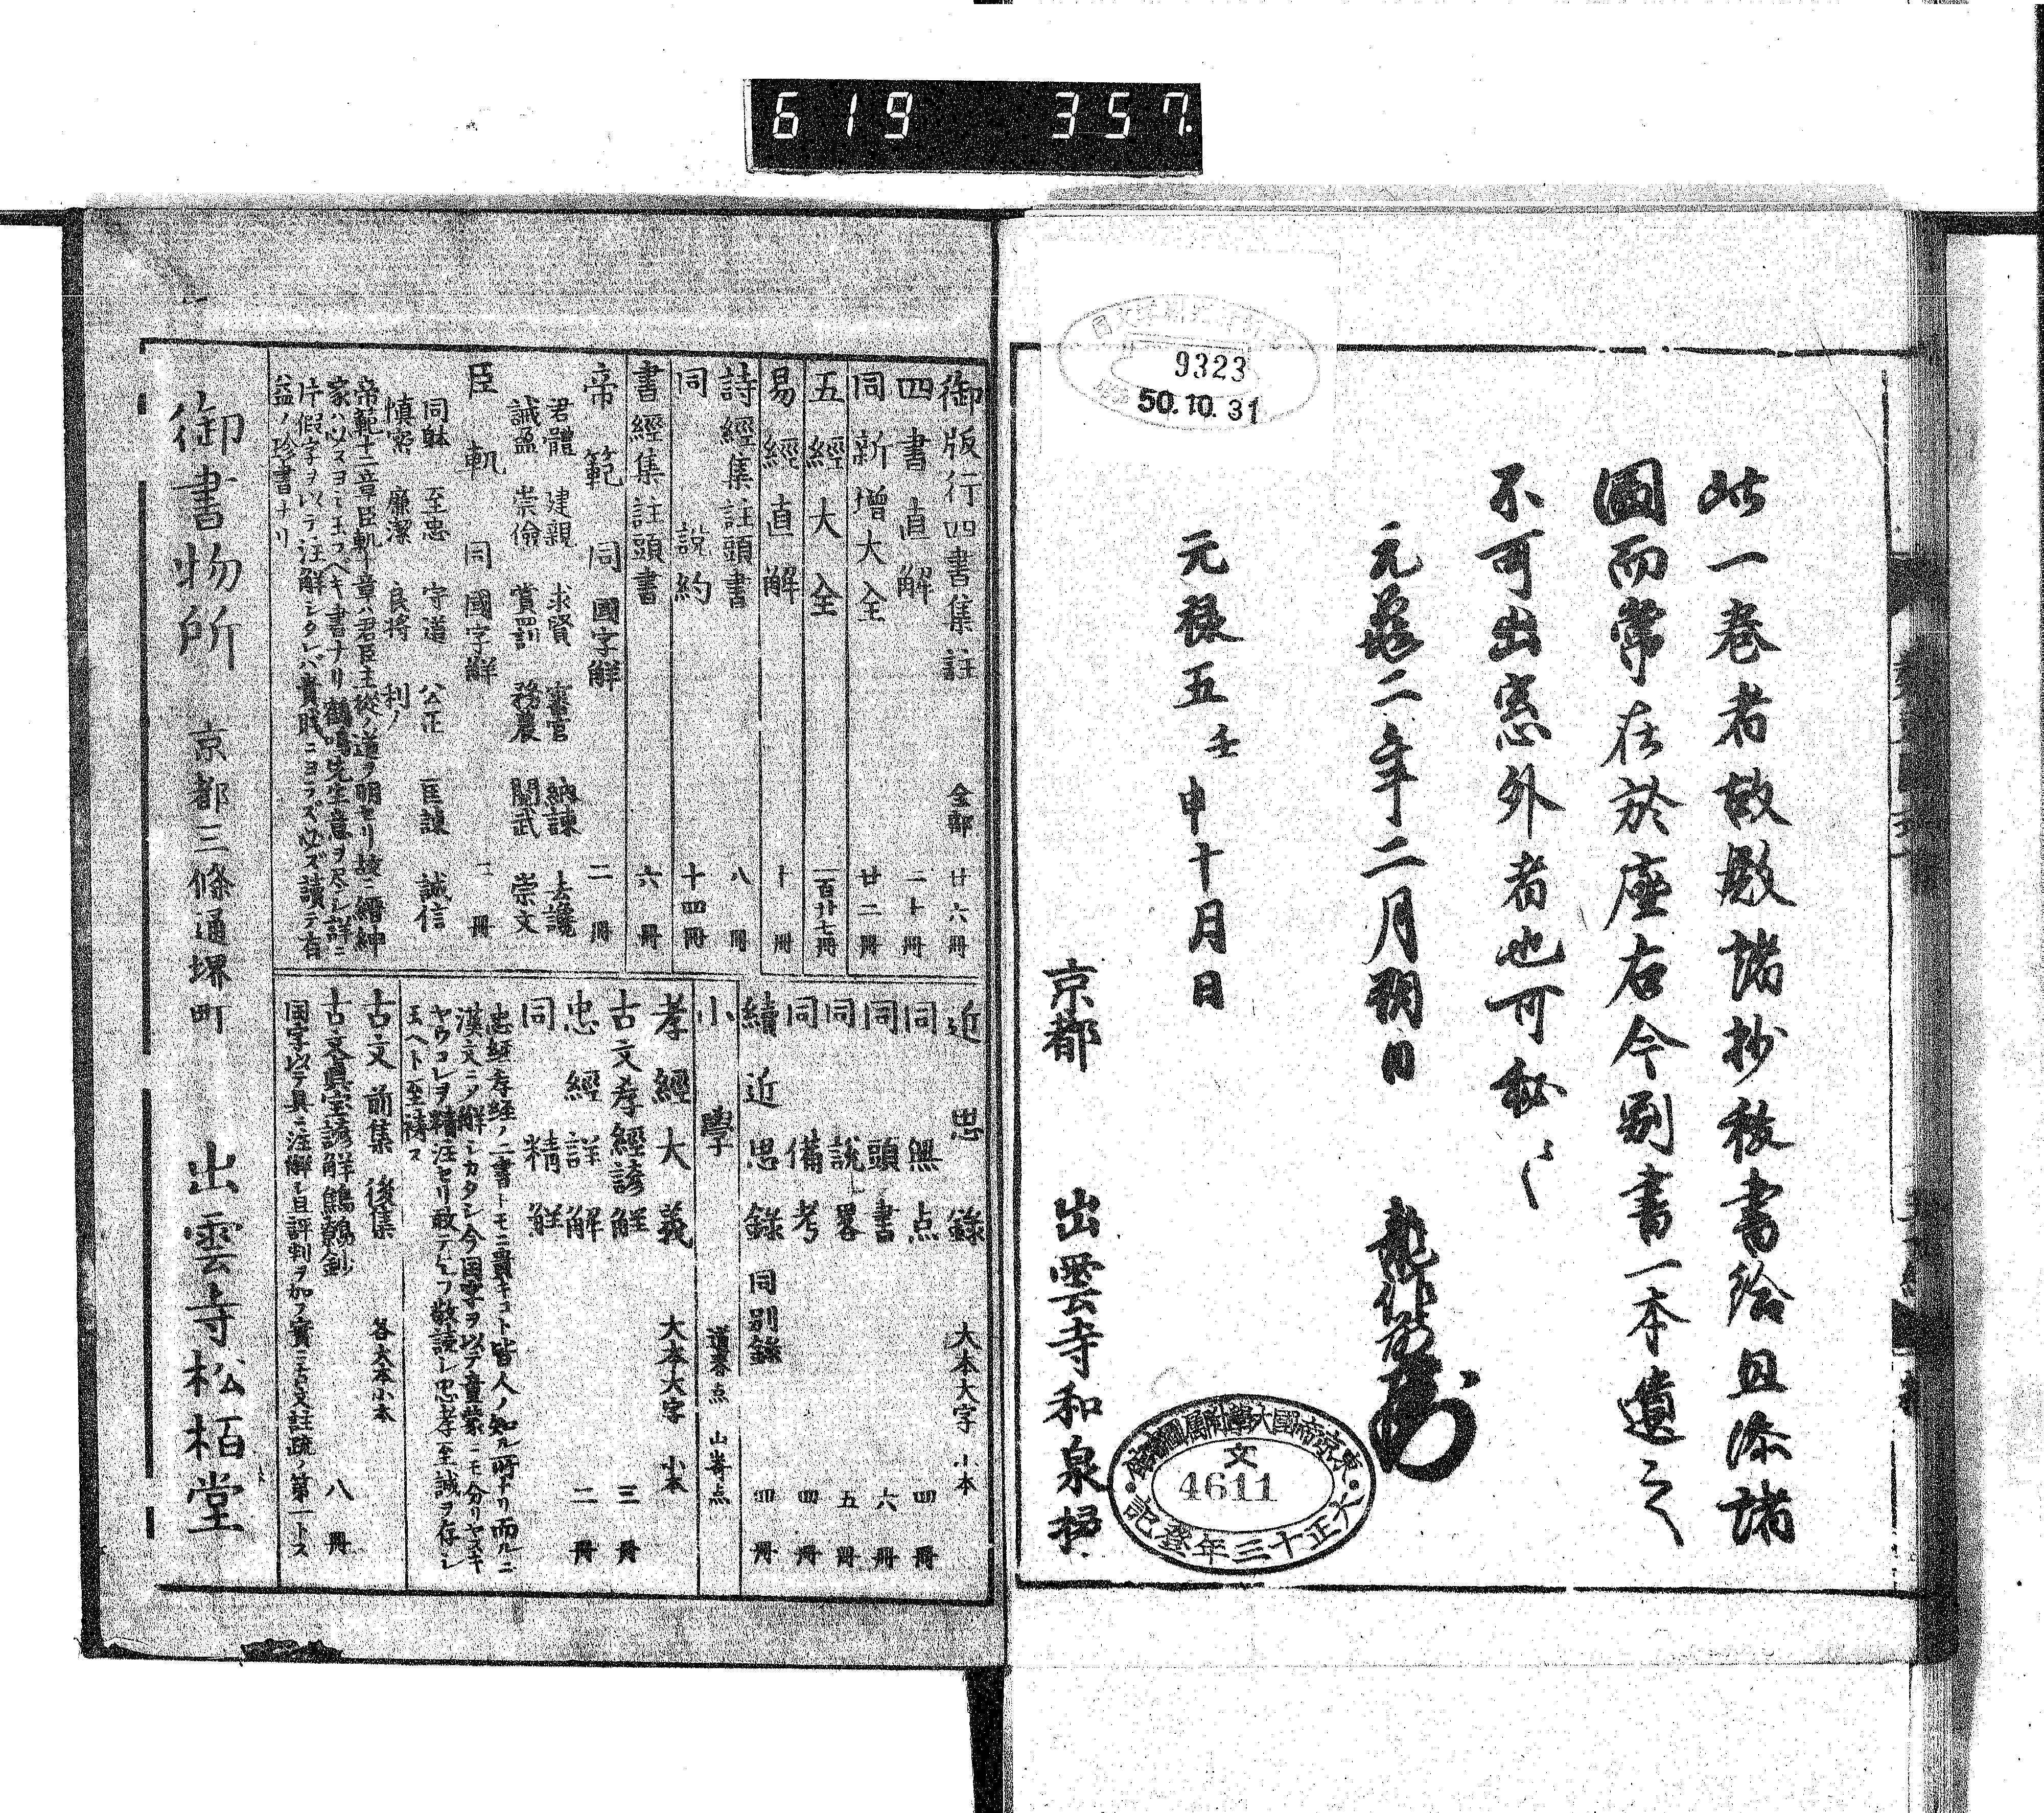 619 357.
9323
50.10.31
此一巻者故殿諸抄被書給且添諸
圖而常在於座右今別書一本遺之
不可出窓外者也可秘〻
元龜二年二月朔日
元祿五壬申十月日
京都 出雲寺和泉掾
東京帝國大學附属圖書館
文
4611
大正十三年登記
御版行四書集註 全部 廿六冊
四書直解 二十冊
同新增大全 廿二冊
五經大全 一百廿七冊
易經直解 十冊
詩經集註頭書 八冊
同說約 十四冊
書經集註頭書 六冊
帝範 同國字解 二冊
君體 建親 求賢 審官 納諫 去讒
誡盈 崇儉 賞罰 務農 閱武 崇文
臣軌 同國字解 二冊
同躰 至忠 守道 公正 匡諫 誠信
慎密 廉潔 良将 利人
帝範十二章臣軌十章ハ君臣主從ノ道ヲ明セリ故ニ縉紳
家ハ必スヨミ玉フヘキ書ナリ鶴鳴先生意ヲ尽シ詳ニ
片假字ヲ以テ注解シタレバ貴賎ニヨラズ必ズ讀テ有
益ノ珍書ナリ
近思錄 大本大字 小本
同無点 四冊
同頭書 六冊
同說畧 五冊
同備考 四冊
續近思錄 同別錄 四冊
小學 道春点 山嵜点
孝經大義 大本大字 小本
古文孝經諺解 三冊
忠經詳解 二冊
同精解
忠經孝経ノ二書トモニ貴キコト皆人ノ知ル所ナリ而ルニ
漢文ニメ解シカタシ今国字ヲ以テ童蒙ニモ分リヤスキ
ヤウコレヲ精注セリ敢テ乞フ敬読シ忠孝至誠ヲ存シ
玉ヘト至祷ス
古文前集 後集 各大本小本
古文眞宝諺解鷦鷯鈔 八冊
国字以テ具ニ注解シ且評判ヲ加フ實ニ古文註疏ノ第一トス
御書物所 京都三條通堺町 出雲寺松栢堂